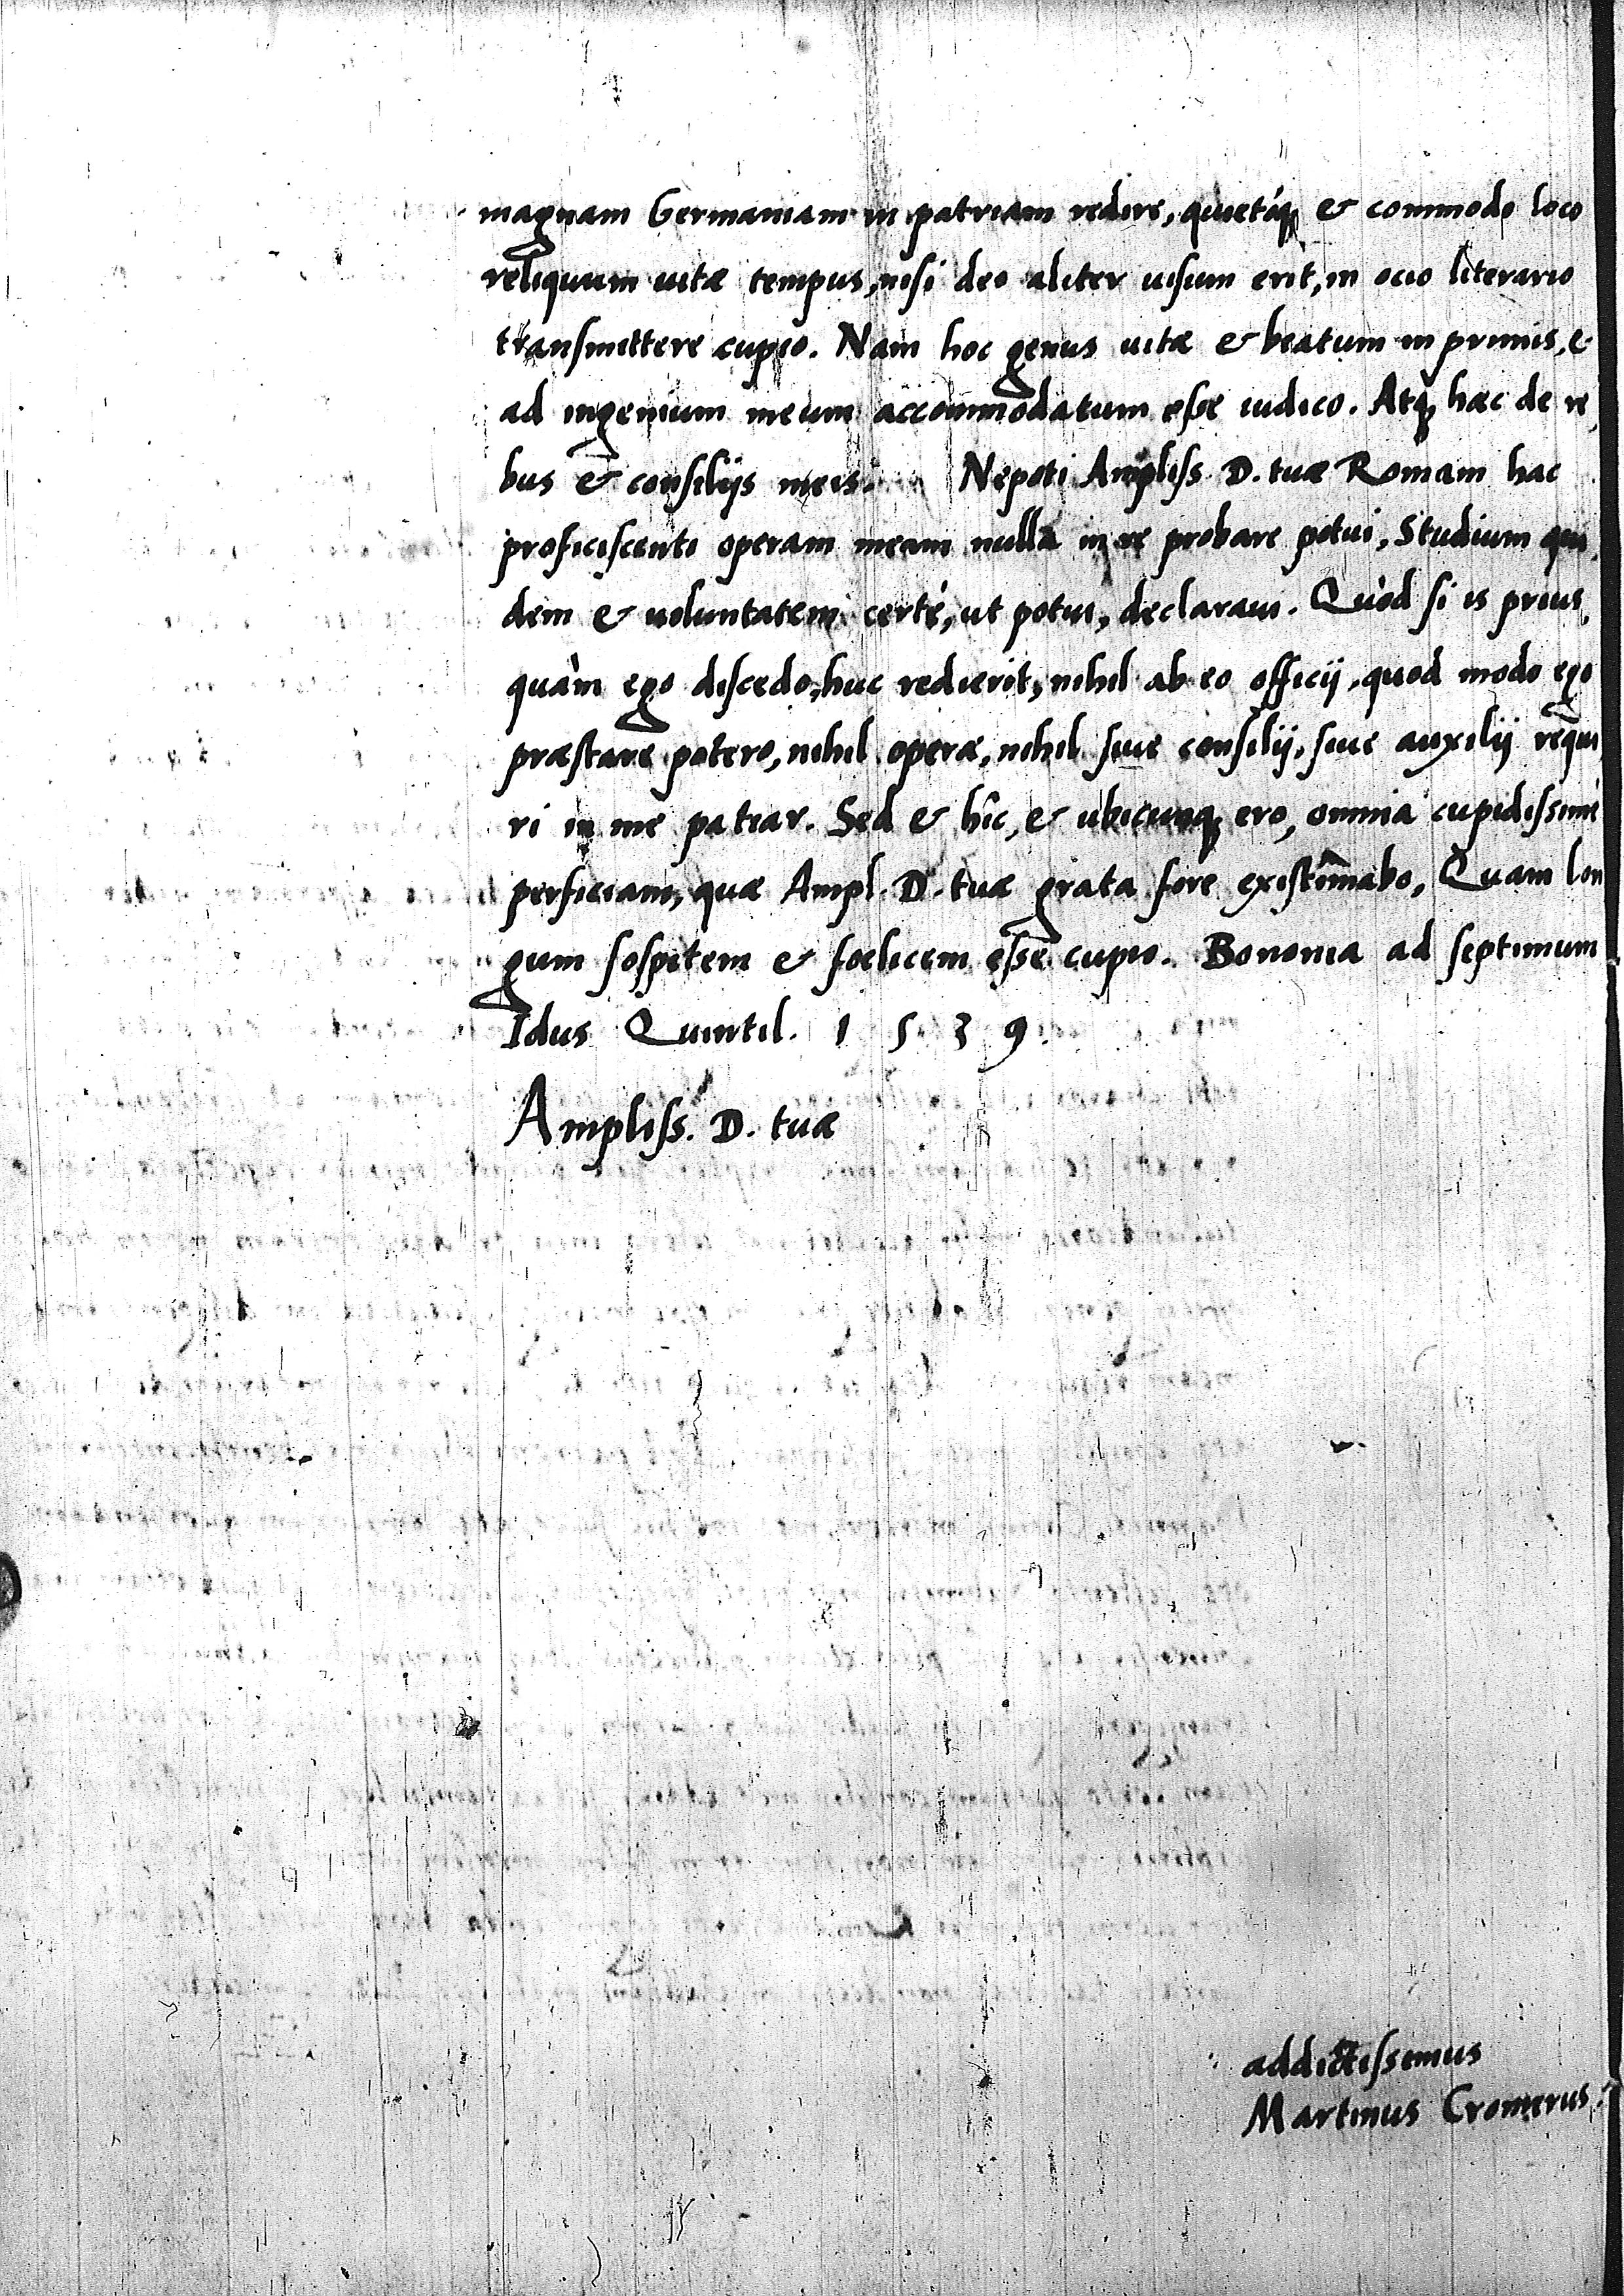 magnam Germaniam in patriam redire, quietóq; & commodo loco
reliquum uitæ tempus, nisi deo aliter uisum erit, in ocio literario
transmittere cupio. Nam hoc genus uitæ & beatum in primis, &
ad ingenium meum accommodatum esse iudico. Atq; hæc de re,
bus & consilijs meis. Nepoti Ampliss D. tuæ Romam hac
proficiscenti operam meam nulla in re probare potui, Studium qui,
dem & uoluntatem certè, ut potui, declaraui. Quòd si is prius,
quàm ego discedo, huc redierit, nihil ab eo officij, quod modo ego
præstare potero, nihil operæ, nihil siue consilij, siue auxilij requi,
ri in me patiar. Sed & hîc, & ubicunq; ero, omnia cupidissimè
perficiam, quæ Ampl. D. tuæ grata fore existimabo, Quam lon
gum sospitem & foelicem esse cupio. Bononia ad septimum
Idus Quintil. 1539.
Ampliss. D. tuæ
addictissimus
Martinus Cromerus.